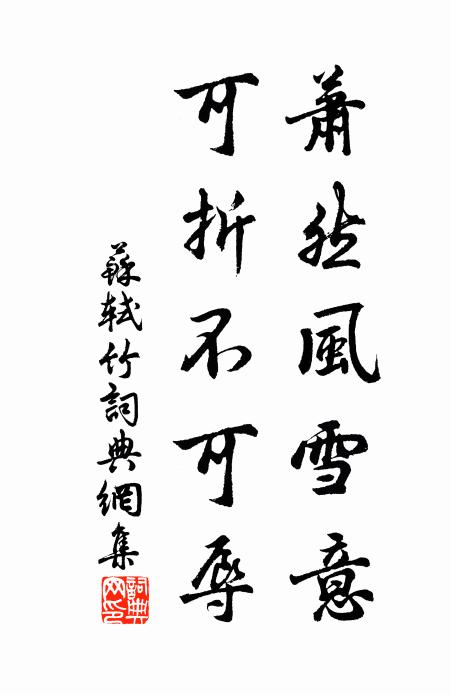 蕭然風雪意
可折不可辱
蘇軾竹詞典網集
詞典網印